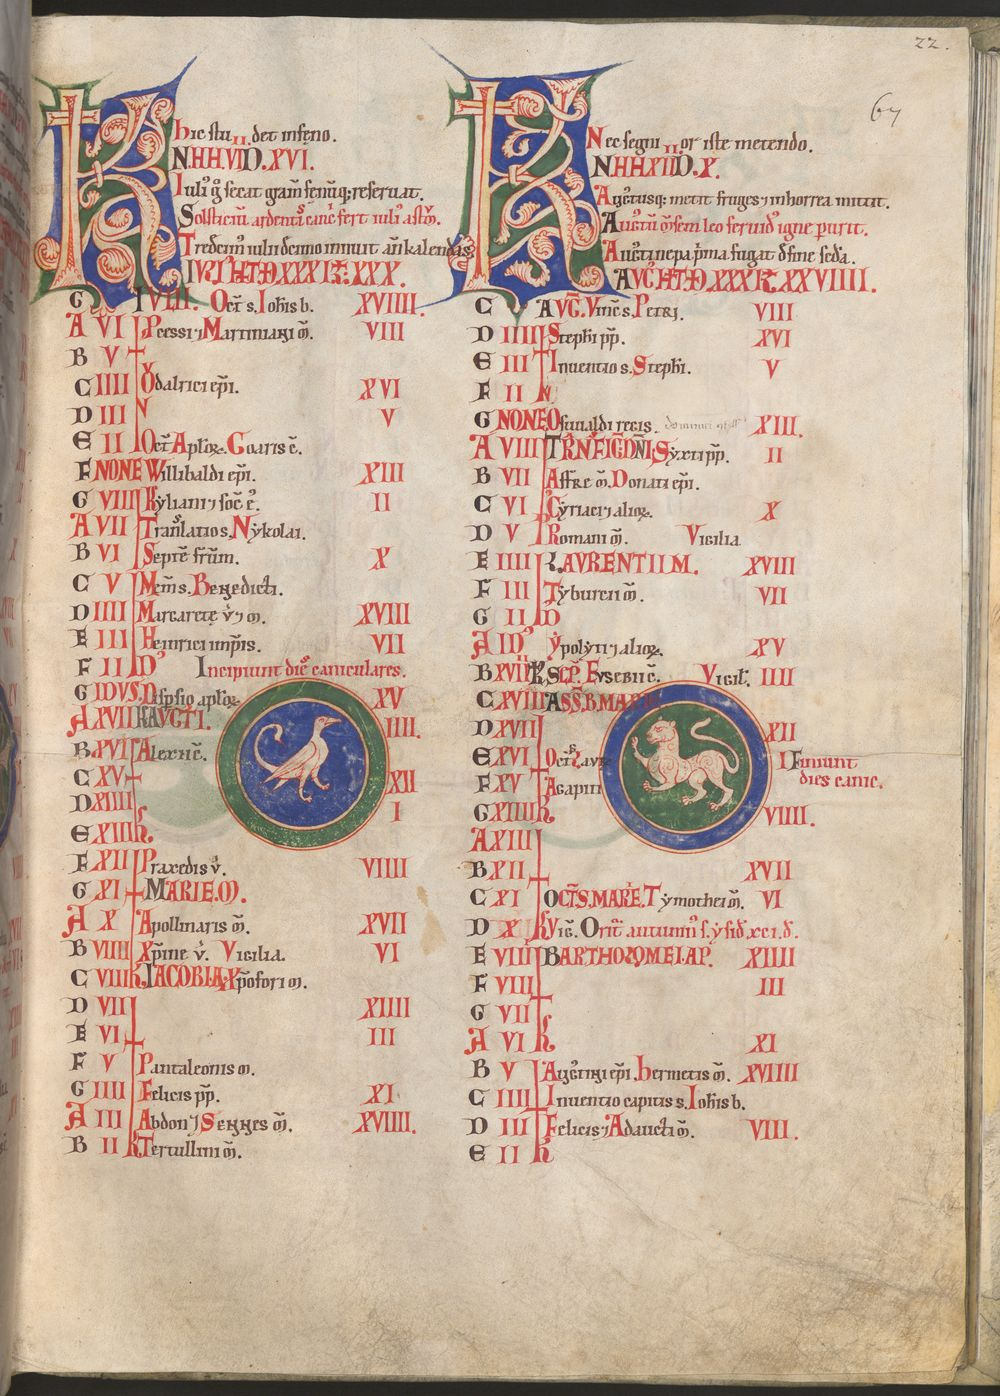 22.
67
Hic stu. II. det inferno.
N.H.H.VI.D.XVI.
Iuli
Solsticiu ardentis cancri fert iulius
IVLI HT D XXXI XXX.
G I VIII. Oct s. Iohis b. XVIIII.
A VI Pcessi ⁊ Martiniani m. VIII
B V
C IIII Odalrici epi. XVI
D III N V
E II Oct Aplor. Goaris c.
F NONE Willibaldi epi. XIII
G VIII Kyliani ⁊ soc e. II
A VII Translatio s. Nykolai.
B VI Septe frum. X
C V Mem s. Benedicti.
D IIII Margarete v ⁊ m. XVIII
E III Heinrici impis. VII
F II D Incipiunt dies caniculares.
G IDVS. Dispsio aplor XV
A XVII K AVGTI. IIII.
B XVI Alexii c.
C XV XII
D XIIII I
E XIII K
F XII Praxedis v. VIIII
G XI MARIE. M.
A X Apollinaris m. XVII
B VIIII Xpine v. Vigilia. VI
C VIII K IACOBI A. Xpofori m.
D VII XIIII
E VI III
F V Pantaleonis m.
G IIII Felicis pp. XI
A III Abdon ⁊ Sennes m. XVIIII.
B II K Tertullini m.
Nec segni II or iste metendo.
N.H.H.XII.D.X.
Augustusq; metit fruges ⁊ in horrea mittit.
Augustu msem leo fervidus igne perurit.
Augusti nepa prima fugat de fine seda.
AVG HT D XXXI XXVIIII.
C AVG. Vinc s. Petri. VIII
D IIII Stephi pp. XVI
E III Inventio s. Stephi. V
F II N
G NONE Osvualdi regis. XIII.
A VIII TRNFIG DNI Syxti pp. II
B VII Affre m. Donati epi.
C VI Cyriaci ⁊ alior. X
D V Romani m. Vigilia
E IIII LAVRENTII M. XVIII
F III Tyburcii m. VII
G II D
A ID Ypolyti ⁊ alior. XV
B XVIIII K SEP. Eusebii c. Vigil. IIII
C XVIII ASS. B. MARI
D XVII XII
E XVI Oct Laure I Finiunt
dies canic.
F XV Agapiti
G XIIII K VIIII.
A XIII
B XII XVII
C XI OCT S. MARIE. Tymothei m. VI
D X K Vig. Orit autumn
E VIIII BARTHOLOMEI. AP. XIIII
F VIII III
G VII
A VI K XI
B V Augustini epi, hermetis m. XVIIII
C IIII Inventio capitis s. Iohis b.
D III Felicis ⁊ Adaucti m. VIII.
E II K